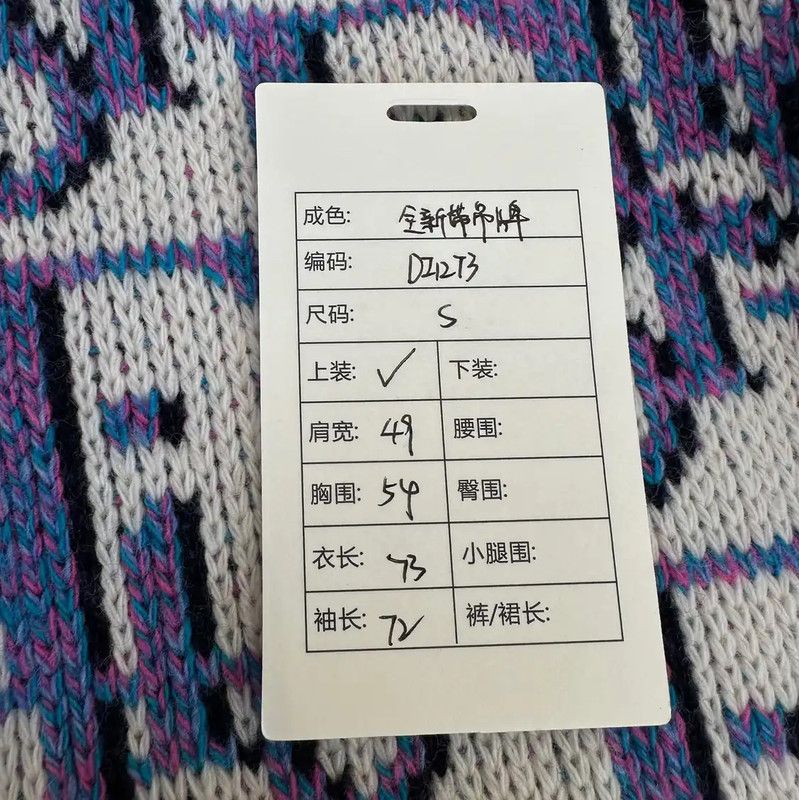 成色: 全新带吊牌
编码: DZ12T3
尺码: S
上装: ✓ 下装:
肩宽: 49 腰围:
胸围: 54 臀围:
衣长: 73 小腿围:
袖长: 72 裤/裙长: